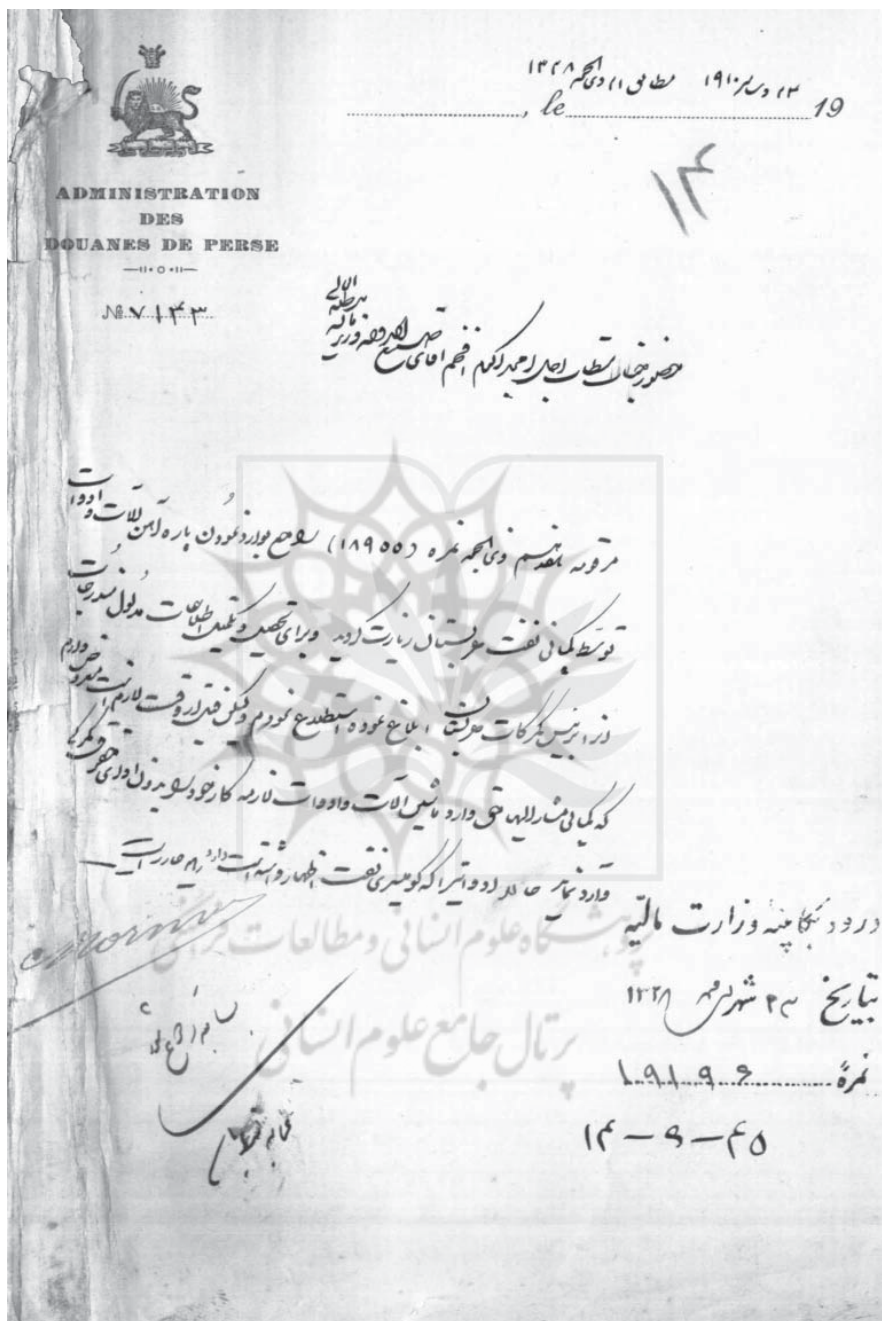 ۱۳ دسامبر ۱۹۱۰ مطابق ۱۱ ذی‌الحجه ۱۳۲۸
, le 19
۱۴
ADMINISTRATION
DES
DOUANES DE PERSE
№ ۷۱۴۳
حضور جناب مستطاب اجل امجد اکرم افخم آقای صنیع الدوله وزیر مالیه
مرقومه هفتم ذی الحجه نمره (۱۸۹۵۵) راجع بوارد نمودن پاره آهن آلات و ادوات
توسط کمپانی نفت عربستان زیارت گردید و برای تحقیق و تکمیل اطلاعات مدلول مندرجات
را برئیس گمرکات عربستان ابلاغ نموده استطلاع نمودم ولیکن
که کمپانی مشارالیها حق دارد ماشین آلات و ادوات لازمه کار خود را بدون ادای حقوق گمرکی
وارد نماید کومیسری نفت اظهار داشته است
Mornard
ورود بکابینه وزارت مالیه
بتاریخ ۲۳ شهر ۱۳۲۸
نمرهٔ ۱۹۱۹۶
۱۴-۹-۴۵
پژوهشگاه علوم انسانی و مطالعات فرهنگی
پرتال جامع علوم انسانی